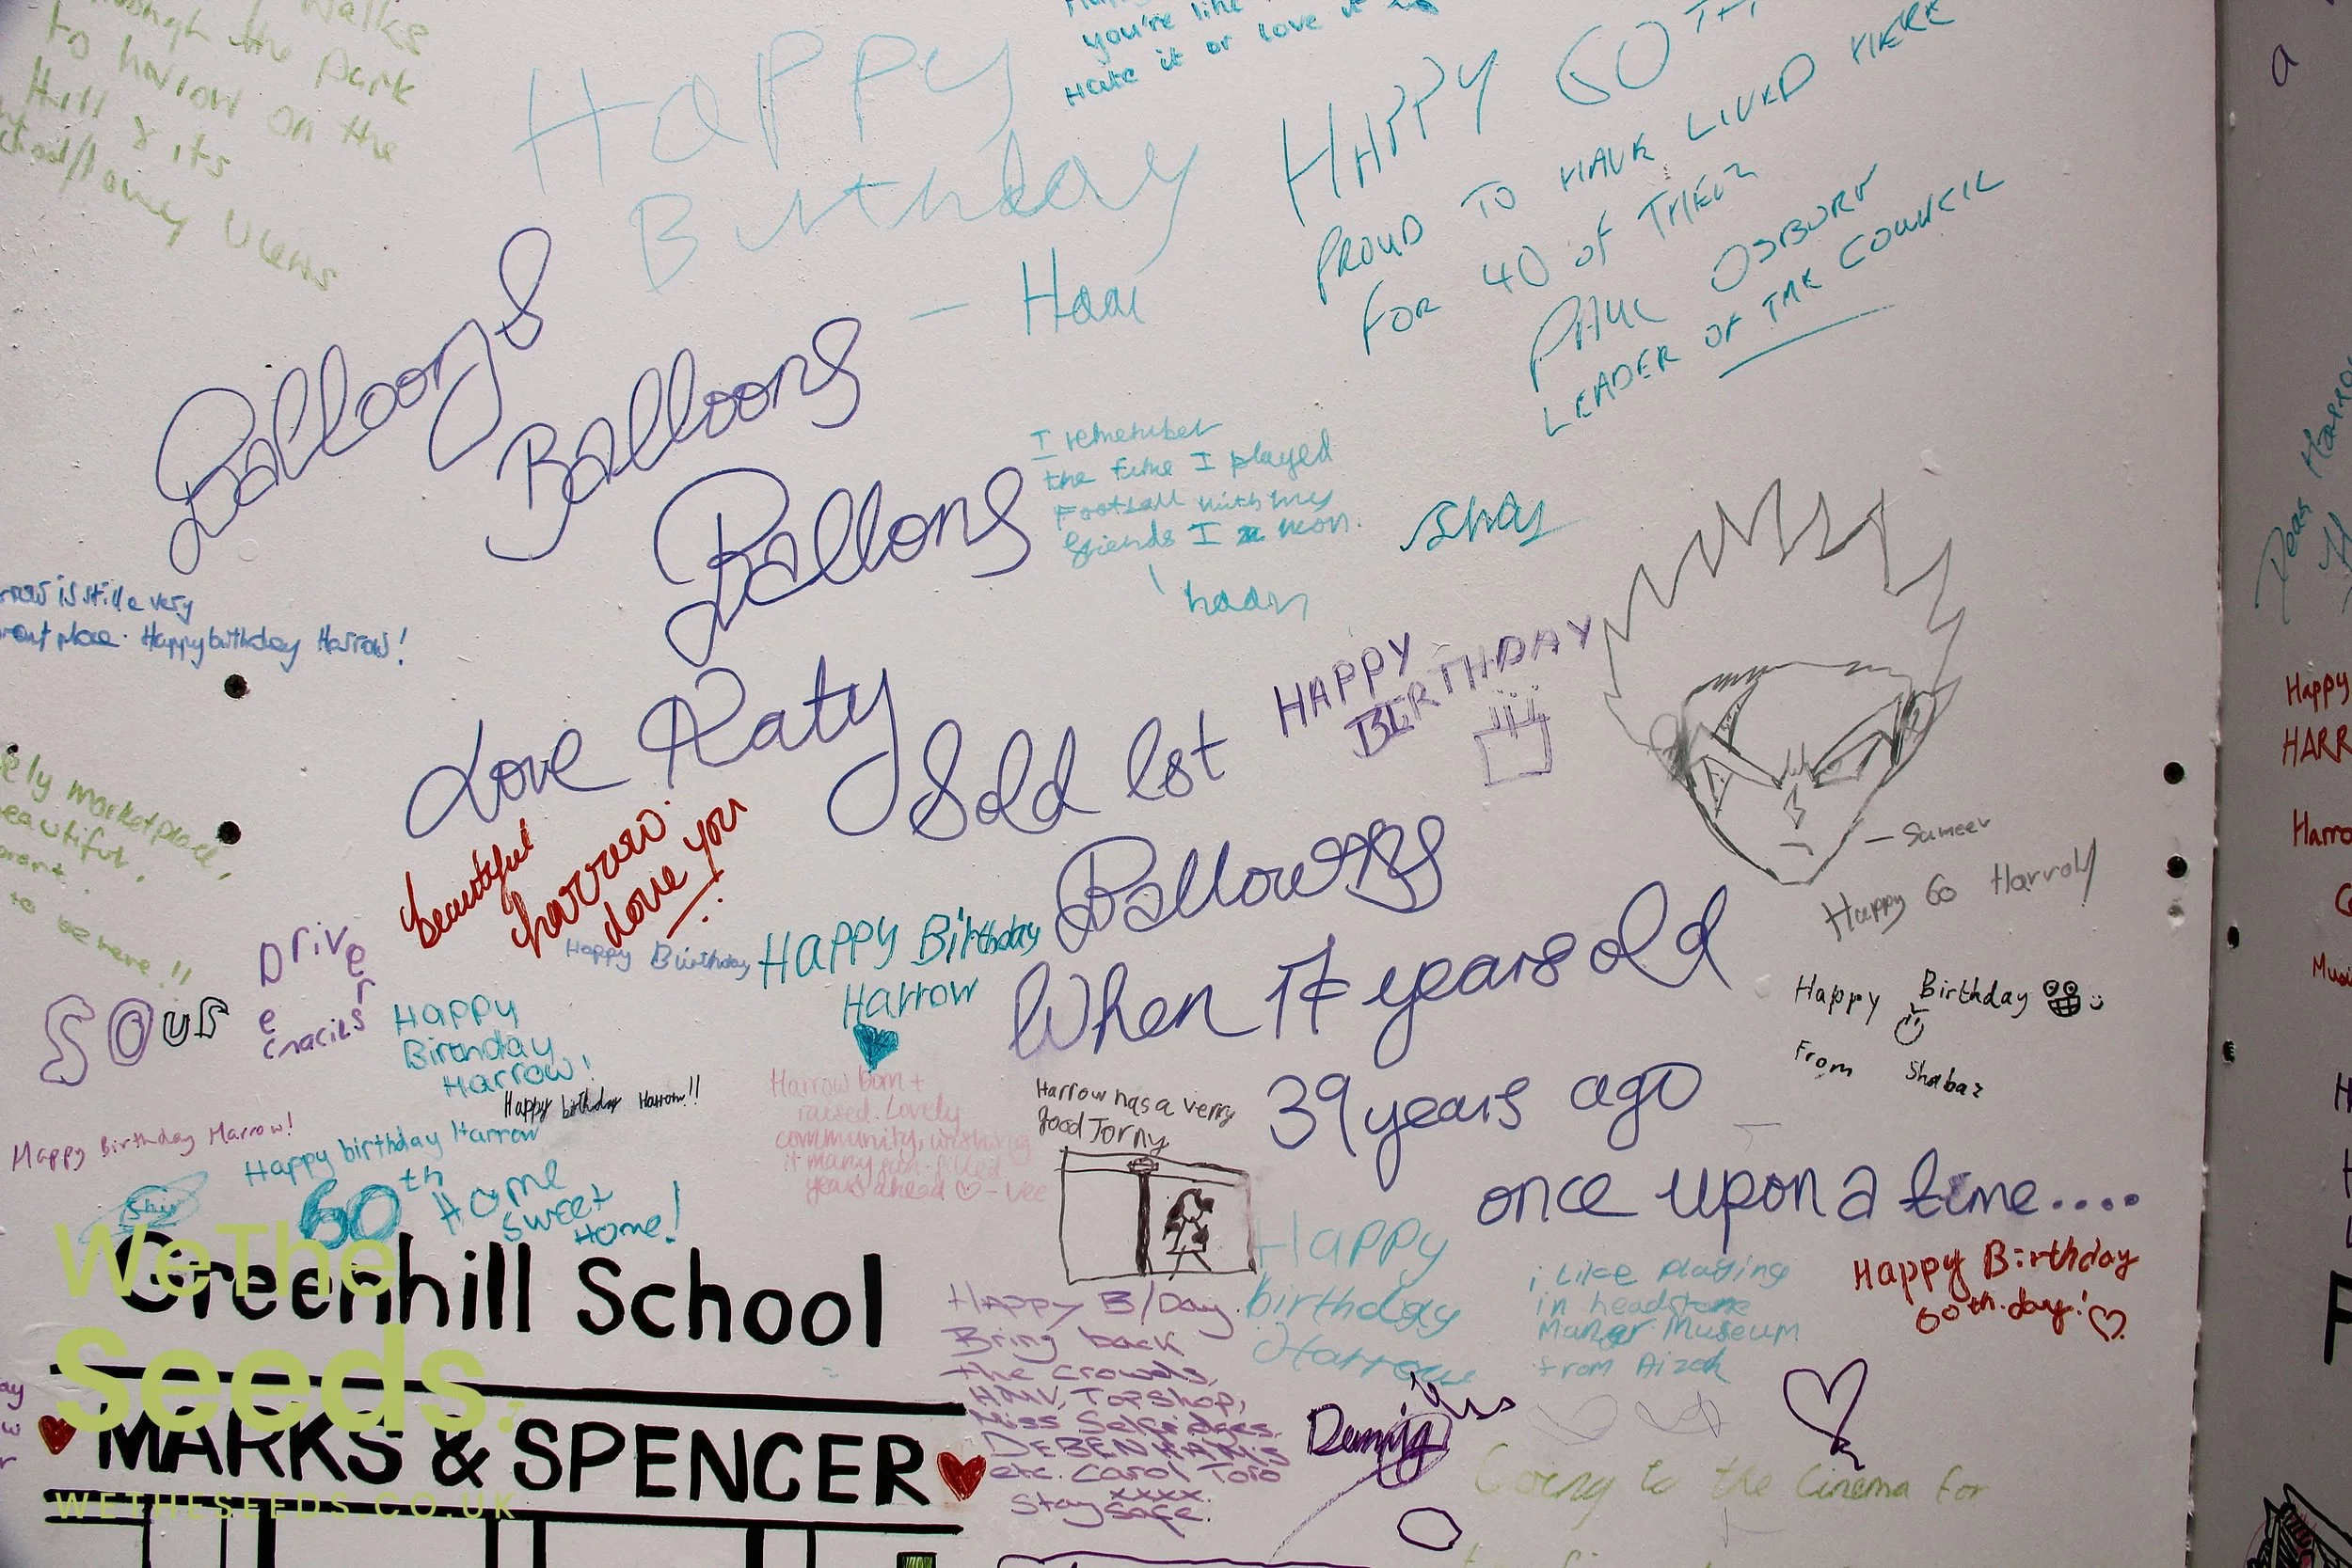 Walks
through the Park
to harrow on the
Hill & its
views
Happy
Birthday
you're like
Hate it or love it
HAPPY 60TH
PROUD TO HAVE LIVED HERE
FOR 40 OF THEM
PAUL OSBORN
LEADER OF THE COUNCIL
Balloons
Balloons
Ballons
Love Katy
Sold 1st
Balloons
When 17 years old
39 years ago
once upon a time....
I remember
the time I played
Football with my
friends I won.
Shay
is still a very
place. Happy birthday Harrow!
HAPPY
BIRTHDAY
- Sameer
Happy 60 Harrow
marketplace,
beautiful.
to be here !!
beautiful
harrow.
love you
Happy Birthday
Happy Birthday
Harrow
Happy Birthday
From Shabaz
Happy
Birthday
Harrow!
Happy birthday Harrow!!
Happy Birthday Harrow!
Happy birthday Harrow
60th
Home
sweet
Home!
Harrow born +
raised. Lovely
community, wishing
it many fun-filled
years ahead ♡ - Vee
Harrow has a verry
good Jorny
Greenhill School
MARKS & SPENCER
WeThe
Seeds.
WETHESEEDS.CO.UK
Happy B/Day.
Bring back
the crowds,
HMV, Topshop,
Miss Selfridges,
DEBENHAMS
etc. Carol Toio
xxxx.
Stay safe.
Happy
birthday
Harrow
i Like playing
in headstone
Manor Museum
from Aizah
Happy Birthday
60th day! ♡
Going to the Cinema for
Dear Harrow
Happy